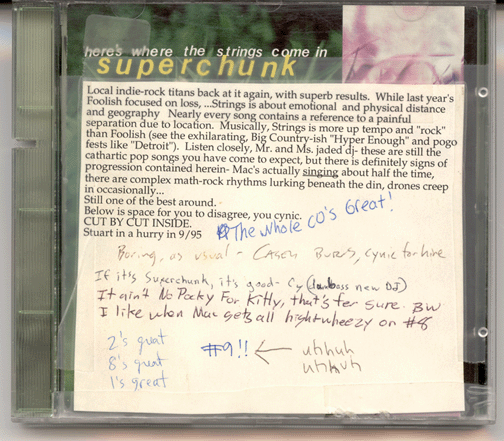 here's where the strings come in
superchunk
Local indie-rock titans back at it again, with superb results. While last year's
Foolish focused on loss, ...Strings is about emotional and physical distance
and geography Nearly every song contains a reference to a painful
separation due to location. Musically, Strings is more up tempo and "rock"
than Foolish (see the exhilarating, Big Country-ish "Hyper Enough" and pogo
fests like "Detroit"). Listen closely, Mr. and Ms. jaded dj- these are still the
cathartic pop songs you have come to expect, but there is definitely signs of
progression contained herein- Mac's actually singing about half the time,
there are complex math-rock rhythms lurking beneath the din, drones creep
in occasionally...
Still one of the best around.
Below is space for you to disagree, you cynic.
CUT BY CUT INSIDE.
Stuart in a hurry in 9/95
The whole CD's Great!
Boring, as usual - Casey Burns, cynic for hire
If it's Superchunk, it's good - Cy ( new DJ)
It ain't No Pocky For Kitty, that's fer sure. BW
I like when Mac gets all high + wheezy on #8
2's great
8's great
1's great
#9!!
uhhuh
uhhuh